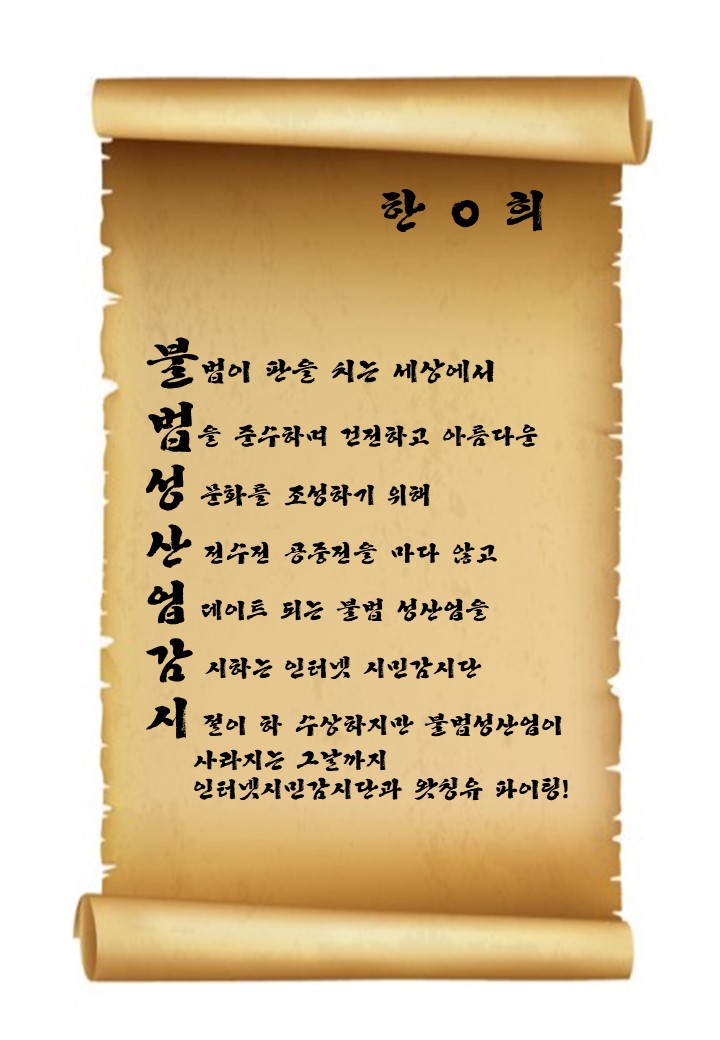 한 O 희
불법이 판을 치는 세상에서
법을 준수하며 건전하고 아름다운
성 문화를 조성하기 위해
산 전수전 공중전을 마다 않고
업 데이트 되는 불법 성산업을
감 시하는 인터넷 시민감시단
시 절이 하 수상하지만 불법성산업이
사라지는 그날까지
인터넷시민감시단과 왓칭유 파이팅!